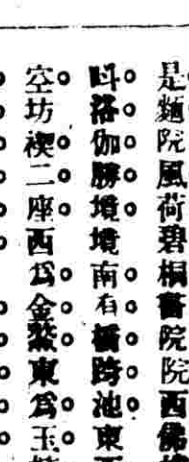 是麯院風荷碧桐書院西佛
洛伽勝境境南有橋跨池東
空坊楔二座西爲金鰲東爲玉